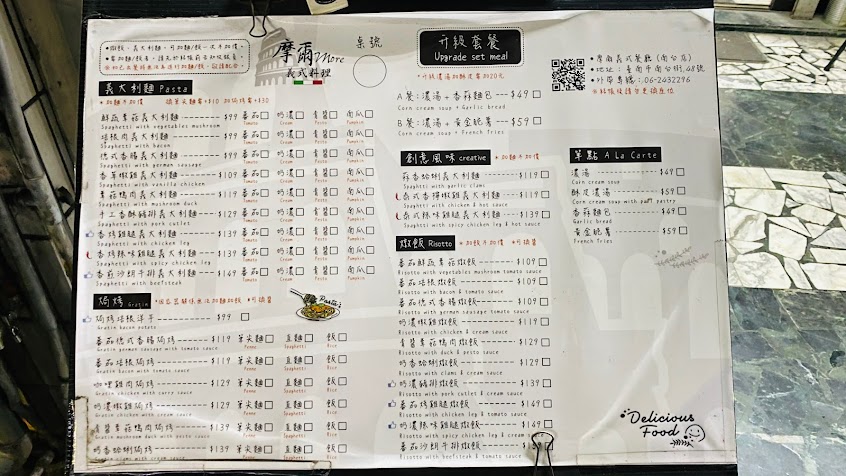 摩爾 more
義式料理
桌號
升級套餐
Upgrade set meal
•摩爾義式餐廳(南台店)
•地址:臺南市南台街,68號
•外帶專線:06-2432296
A餐:濃湯+香蒜麵包 --- $49 □
Corn cream soup + Garlic bread
B餐:濃湯+黃金脆薯 --- $59 □
Corn cream soup + French fries
義大利麵 Pasta
•加麵不加價
鮮蔬素菇義大利麵 $99 番茄□ 奶濃□ 青醬□ 南瓜□
Spaghetti with vegetables mushroom Tomato Cream Pesto Pumpkin
培根肉義大利麵 $99 番茄□ 奶濃□ 青醬□ 南瓜□
Spaghetti with bacon
德式香腸義大利麵 $99 番茄□ 奶濃□ 青醬□ 南瓜□
Spaghetti with german sausage
香草嫩雞義大利麵 $109 番茄□ 奶濃□ 青醬□ 南瓜□
Spaghetti with vanilla chicken
素菇鴨肉義大利麵 $119 番茄□ 奶濃□ 青醬□ 南瓜□
Spaghetti with mushroom duck
手工香酥豬排義大利麵 $129 番茄□ 奶濃□ 青醬□ 南瓜□
Spaghetti with pork cutlet
香烤雞腿義大利麵 $139 番茄□ 奶濃□ 青醬□ 南瓜□
Spaghetti with chicken leg
香烤辣味雞腿義大利麵 $139 番茄□ 奶濃□ 青醬□ 南瓜□
Spaghetti with spicy chicken leg
香煎沙朗牛排義大利麵 $149 番茄□ 奶濃□ 青醬□ 南瓜□
Spaghetti with beefsteak
焗烤 Gratin
焗烤培根洋芋 $99 □
Gratin bacon potato
番茄德式香腸焗烤 $119 筆尖麵□ 直麵□ 飯□
Gratin german sausage with tomato sauce Penne Spaghetti Rice
番茄培根焗烤 $119 筆尖麵□ 直麵□ 飯□
Gratin bacon with tomato sauce
咖哩雞肉焗烤 $129 筆尖麵□ 直麵□ 飯□
Gratin chicken with curry sauce
奶濃嫩雞焗烤 $129 筆尖麵□ 直麵□ 飯□
Gratin chicken with cream sauce
青醬素菇鴨肉焗烤 $139 筆尖麵□ 直麵□ 飯□
Gratin mushroom duck with pesto sauce
奶香蛤蜊焗烤 $139 筆尖麵□ 直麵□ 飯□
Pasta's
創意風味 creative
•加麵不加價
蒜香蛤蜊義大利麵 $119 □
Spaghtti with garlic clams
泰式香檸嫩雞義大利麵 $119 □
Spaghtti with chicken & hot sauce
泰式辣味雞腿義大利麵 $139 □
Spaghtti with spicy chicken leg & hot sauce
燉飯 Risotto
•加飯不加價
番茄鮮蔬素菇燉飯 $109 □
Risotto with vegetables mushrooms tomato sauce
番茄培根燉飯 $109 □
Risotto with bacon & tomato sauce
番茄德式香腸燉飯 $109 □
Risotto with german sausage tomato sauce
奶濃嫩雞燉飯 $119 □
Risotto with chicken & cream sauce
青醬素菇鴨肉燉飯 $129 □
Risotto with duck & pesto sauce
奶香蛤蜊燉飯 $129 □
Risotto with clams & cream sauce
奶濃豬排燉飯 $139 □
Risotto with pork cutlet & cream sauce
番茄烤雞腿燉飯 $149 □
Risotto with chicken leg & tomato sauce
奶濃辣味雞腿燉飯 $149 □
Risotto with spicy chicken leg & cream sauce
番茄沙朗牛排燉飯
Risotto with beefsteak & tomato sauce
單點 A La Carte
濃湯 $49 □
Corn cream soup
酥皮濃湯 $59 □
Corn cream soup with puff pastry
香蒜麵包 $49 □
Garlic bread
黃金脆薯 $59 □
French fries
Delicious
Food